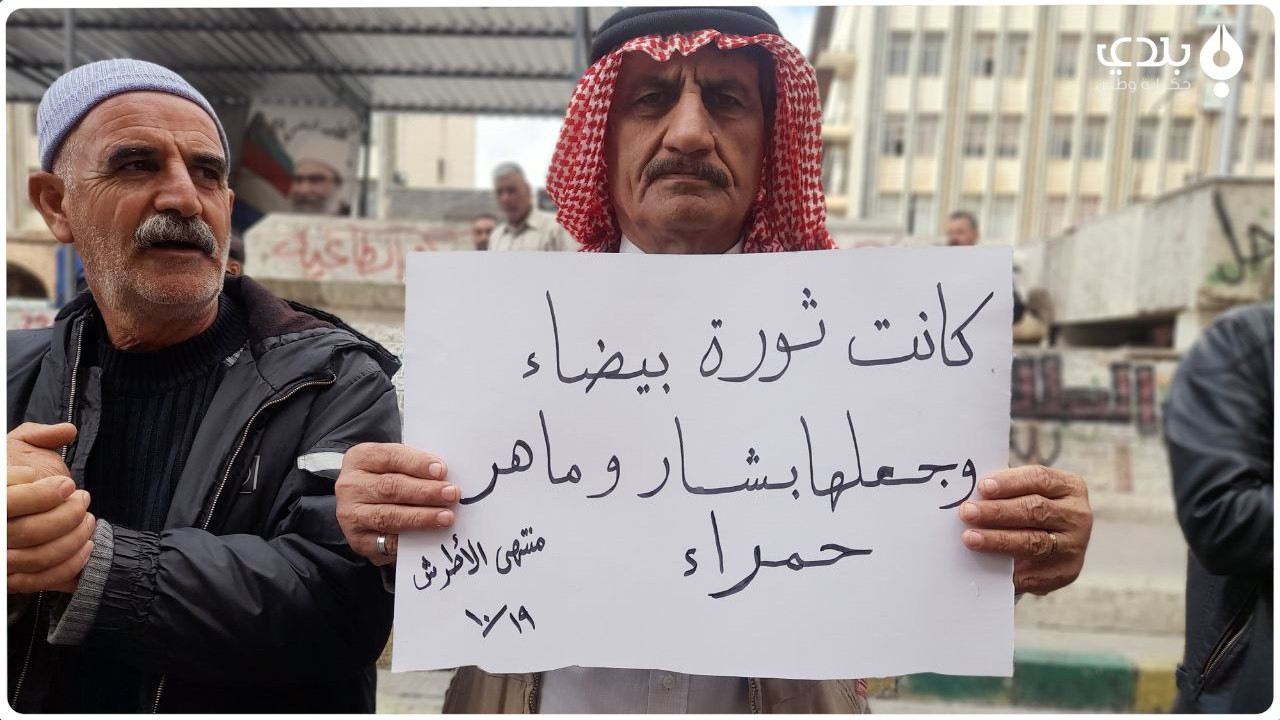 بلدي
كانت ثورة بيضاء
وجعلها بشار وماهر
حمراء
منتهى الأطرش
١٠/١٩